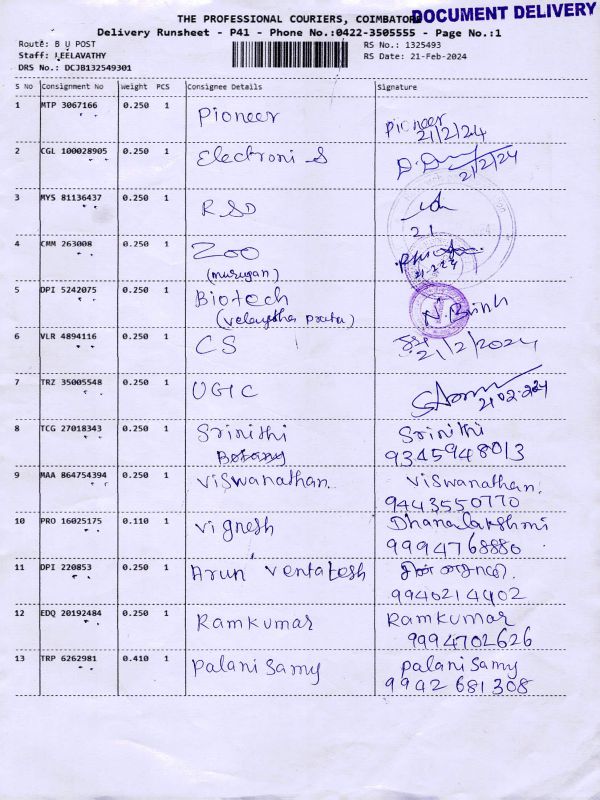 THE PROFESSIONAL COURIERS, COIMBATORE
DOCUMENT DELIVERY
Delivery Runsheet - P41 - Phone No.:0422-3505555 - Page No.:1
Route: B U POST
RS No.: 1325493
Staff: LEELAVATHY
RS Date: 21-Feb-2024
DRS No.: DCJB132549301
S No Consignment No Weight PCS Consignee Details Signature
1 MTP 3067166 0.250 1 Pioneer Pioneer
21/2/24
2 CGL 100028905 0.250 1 Electroni S
21/2/24
3 MYS 81136437 0.250 1 RSD
21
4 CMM 263008 0.250 1 ZOO
(murugan) 21-2-24
5 DPI 5242075 0.250 1 Biotech
6 VLR 4894116 0.250 1 CS
21/2/2024
7 TRZ 35005548 0.250 1 UGIC
8 TCG 27018343 0.250 1 Srinithi Srinithi
Botany 9345948013
9 MAA 864754394 0.250 1 Viswanathan Viswanathan
9443550770
10 PRO 16025175 0.110 1 Vignesh Dhanalakshmi
9994768880
11 DPI 220853 0.250 1 Arun Ventatesh
9940214402
12 EDQ 20192484 0.250 1 Ramkumar Ramkumar
9994702626
13 TRP 6262981 0.410 1 palani samy palani samy
9992681308